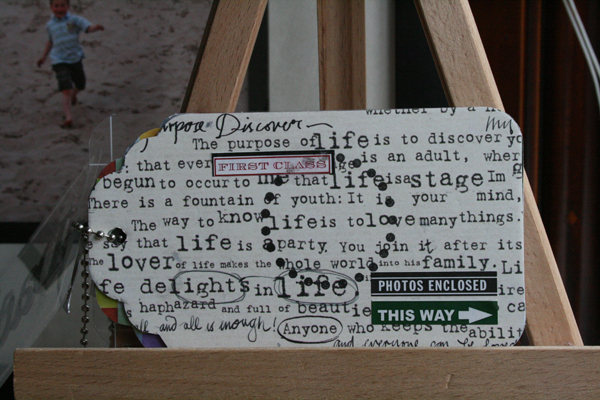 whether by a
urpose Discover my
The purpose of life is to discover yo
: that ever FIRST CLASS is an adult, wher
begun to occur to me that life is a stage Im g
here is a fountain of youth: It is your mind,
The way to know life is to love many things.
say that life is a party. You join it after its
he lover of life makes the whole world into his family. Li
fe delights in life PHOTOS ENCLOSED ire
is haphazard and full of beautie THIS WAY
all and all is enough! Anyone who keeps the abilit
and everyone can be